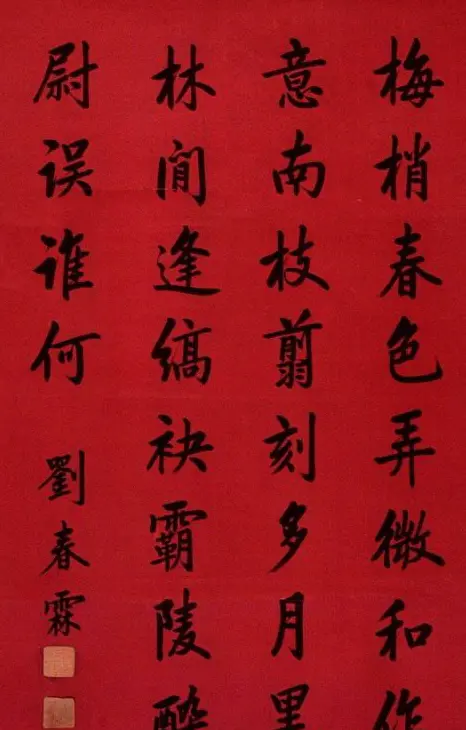 梅梢春色弄微和作
意南枝翦刻多月里
林間逢縞袂霸陵醉
尉误谁何
劉春霖